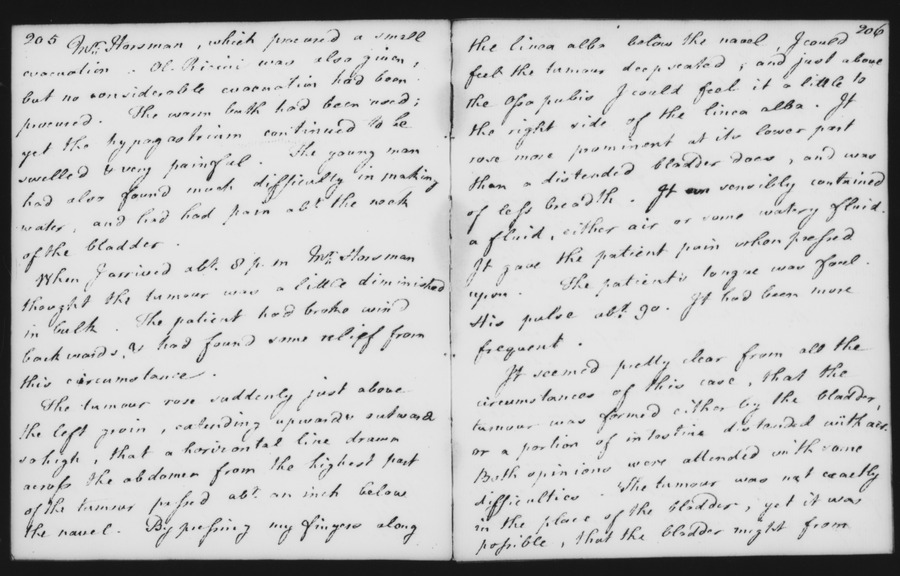 205
Mr. Horsman, which procured a small
evacuation. Ol. Ricini was also given,
but no considerable evacuation had been
procured. The warm bath had been used;
yet the hypogastrium continued to be
swelled & very painful. The young man
had also found much difficulty in making
water, and had had pain abt. the neck
of the bladder.
When I arrived abt. 8 p.m Mr. Horsman
thought the tumour was a little diminished
in bulk. The patient had broke wind
backwards, & had found some relief from
this circumstance.
The tumour rose suddenly just above
the left groin, extending upwards outward
so high, that a horizontal line drawn
across the abdomen from the highest part
of the tumour passed abt. an inch below
the navel. By pressing my fingers along
206
the linea alba below the navel, I could
feel the tumour deep seated; and just above
the Ossa pubis I could feel it a little to
the right side of the linea alba. It
rose more prominent at its lower part
than a distended bladder does, and was
of less breadth. It sensibly contained
a fluid, either air or some watery fluid.
It gave the patient pain when pressed
upon. The patient's tongue was foul.
His pulse abt. 90. It had been more
frequent.
It seemed pretty clear from all the
circumstances of this case, that the
tumour was formed either by the bladder,
or a portion of intestine distended with air.
Both opinions were attended with some
difficulties. The tumour was not exactly
in the place of the bladder, yet it was
possible, that the bladder might from